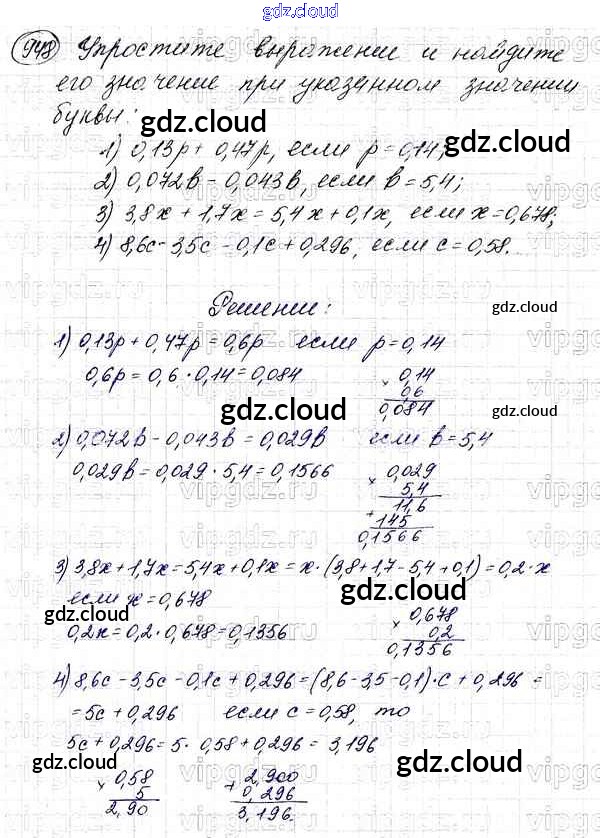 gdz.cloud
948 Упростите выражении и найдите
его значение при указанном значении
буквы:
gdz.cloud gdz.cloud
1) 0,13p + 0,47p, если p = 0,14;
2) 0,072в - 0,043в, если в = 5,4;
3) 3,8x + 1,7x = 5,4x + 0,1x, если x = 0,678;
4) 8,6c - 3,5c - 0,1c + 0,296, если c = 0,58.
Решении:
gdz.cloud
1) 0,13p + 0,47p = 0,6p если p = 0,14
0,6p = 0,6 · 0,14 = 0,084
× 0,14
0,6
0,084
gdz.cloud gdz.cloud
2) 0,072в - 0,043в = 0,029в если в = 5,4
0,029в = 0,029 · 5,4 = 0,1566
× 0,029
5,4
+ 11,6
145
0,1566
gdz.cloud
3) 3,8x + 1,7x = 5,4x + 0,1x = x · (3,8 + 1,7 - 5,4 + 0,1) = 0,2 · x
если x = 0,678
gdz.cloud
0,2x = 0,2 · 0,678 = 0,1356
× 0,678
0,2
0,1356
gdz.cloud
4) 8,6c - 3,5c - 0,1c + 0,296 = (8,6 - 3,5 - 0,1) · c + 0,296 =
= 5c + 0,296 если c = 0,58, то
5c + 0,296 = 5 · 0,58 + 0,296 = 3,196
gdz.cloud gdz.cloud
× 0,58
5
2,90
+ 2,900
0,296
3,196.
vipgdz.ru